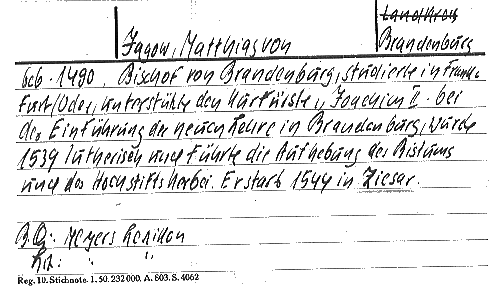 Landkreis
Jagow, Matthias von Brandenburg
Geb. 1490. Bischof von Brandenburg, studierte in Frank-
furt/Oder, unterstützte den Kurfürsten Joachim II. bei
der Einführung der neuen Lehre in Brandenburg, wurde
1539 lutherisch und führte die Aufhebung des Bistums
und des Hochstifts herbei. Er starb 1544 in Ziesar.
B.Q.: Meyers Lexikon
"
Reg. 10. Stichnote. 1. 50. 232 000. A. 803. S. 4062